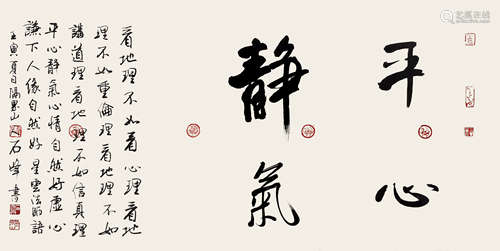 平心
静氣
看地理不如看心理看地
理不如重倫理看地理不如
講道理看地理不如信真理
平心静氣心情自然好虛心
謙下人緣自然好星雲法師語
壬寅夏日山石峰書